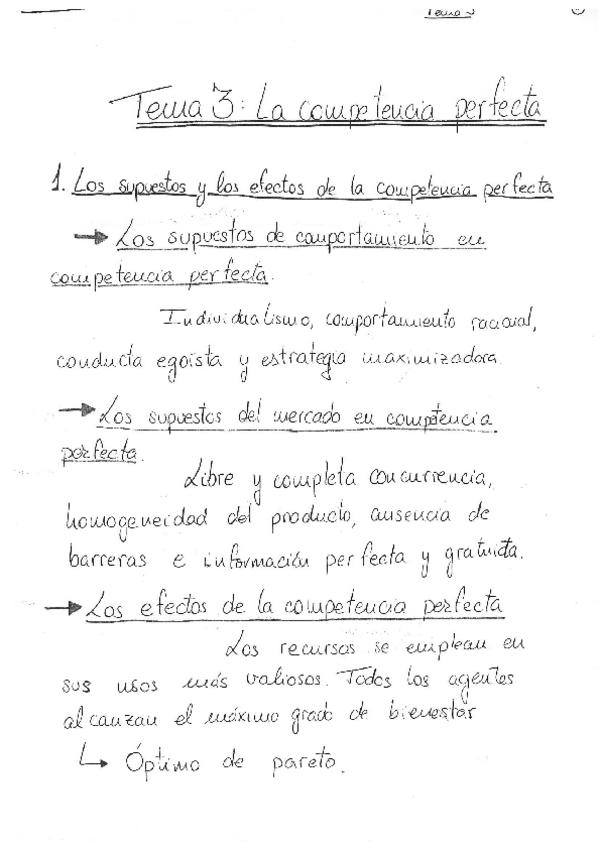 Tema 3
Tema 3: La competencia perfecta
1. Los supuestos y los efectos de la competencia perfecta
→ Los supuestos de comportamiento en
competencia perfecta.
Individualismo, comportamiento racional,
conducta egoísta y estrategia maximizadora.
→ Los supuestos del mercado en competencia
perfecta.
Libre y completa concurrencia,
homogeneidad del producto, ausencia de
barreras e información perfecta y gratuita.
→ Los efectos de la competencia perfecta
Los recursos se emplean en
sus usos más valiosos. Todos los agentes
alcanzan el máximo grado de bienestar
↳ Óptimo de pareto.